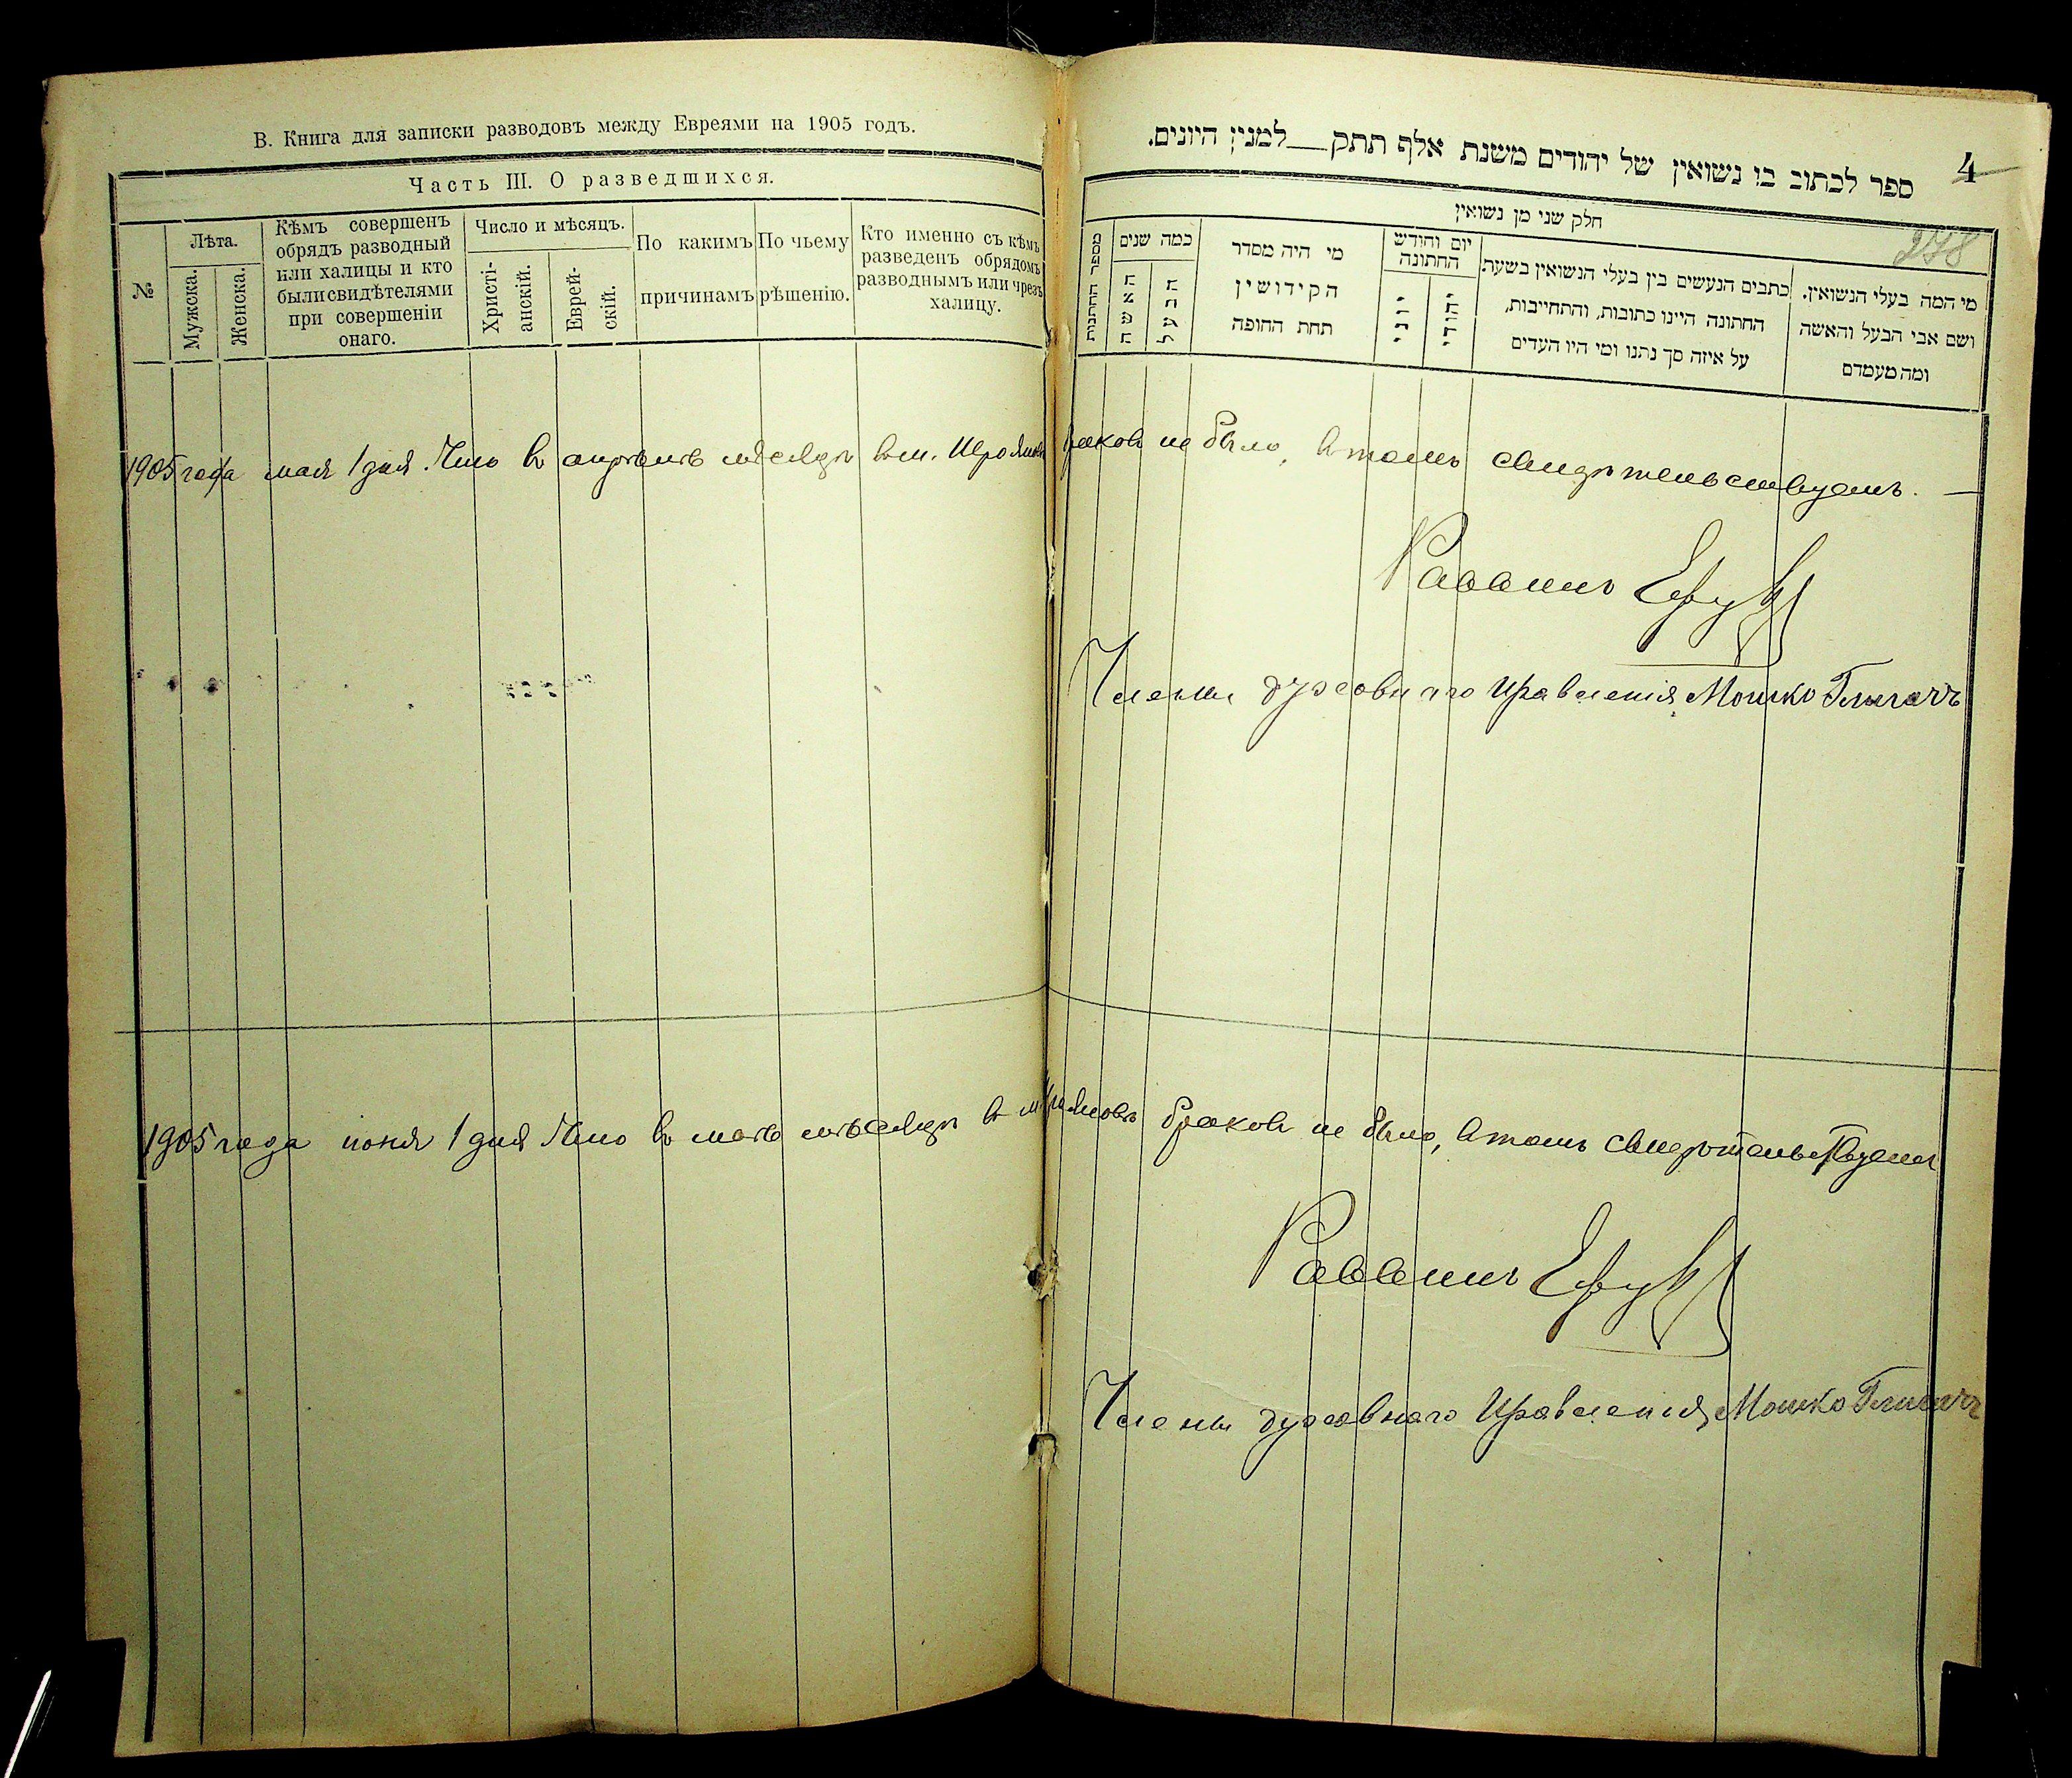 В. Книга для записки разводовъ между Евреями на 1905 годъ.
Часть III. О разведшихся.
№
Лѣта.
Мужска.
Женска.
Кѣмъ совершенъ
обрядъ разводный
или халицы и кто
были свидѣтелями
при совершеніи
онаго.
Число и мѣсяцъ.
Христі-
анскій.
Еврей-
скій.
По какимъ
причинамъ
По чьему
рѣшенію.
Кто именно съ кѣмъ
разведенъ обрядомъ
разводнымъ или чрезъ
халицу.
4
278
ספר לכתוב בו נשואין של יהודים משנת אלף תתק__למנין היונים.
חלק שני מן נשואין
מספר החתנות
כמה שנים
האשה
הבעל
מי היה מסדר
הקידושין
תחת החופה
יום וחודש
החתונה
יוני
יהודי
כתבים הנעשים בין בעלי הנשואין בשעת
החתונה היינו כתובות, והתחייבות,
על איזה סך נתנו ומי היו העדים
מי המה בעלי הנשואין.
ושם אבי הבעל והאשה
ומה מעמדם
1905 года мая 1 дня. Что въ апрѣлѣ мѣсяцѣ в м. браковъ не было, в томъ свидѣтельствуемъ. —
Раввинъ
Члены духовнаго Правленія Мошко
1905 года іюня 1 дня Что въ маѣ мѣсяцѣ в м. браковъ не было, в томъ свидѣтельствуемъ
Раввинъ
Члены духовнаго Правленія Мошко